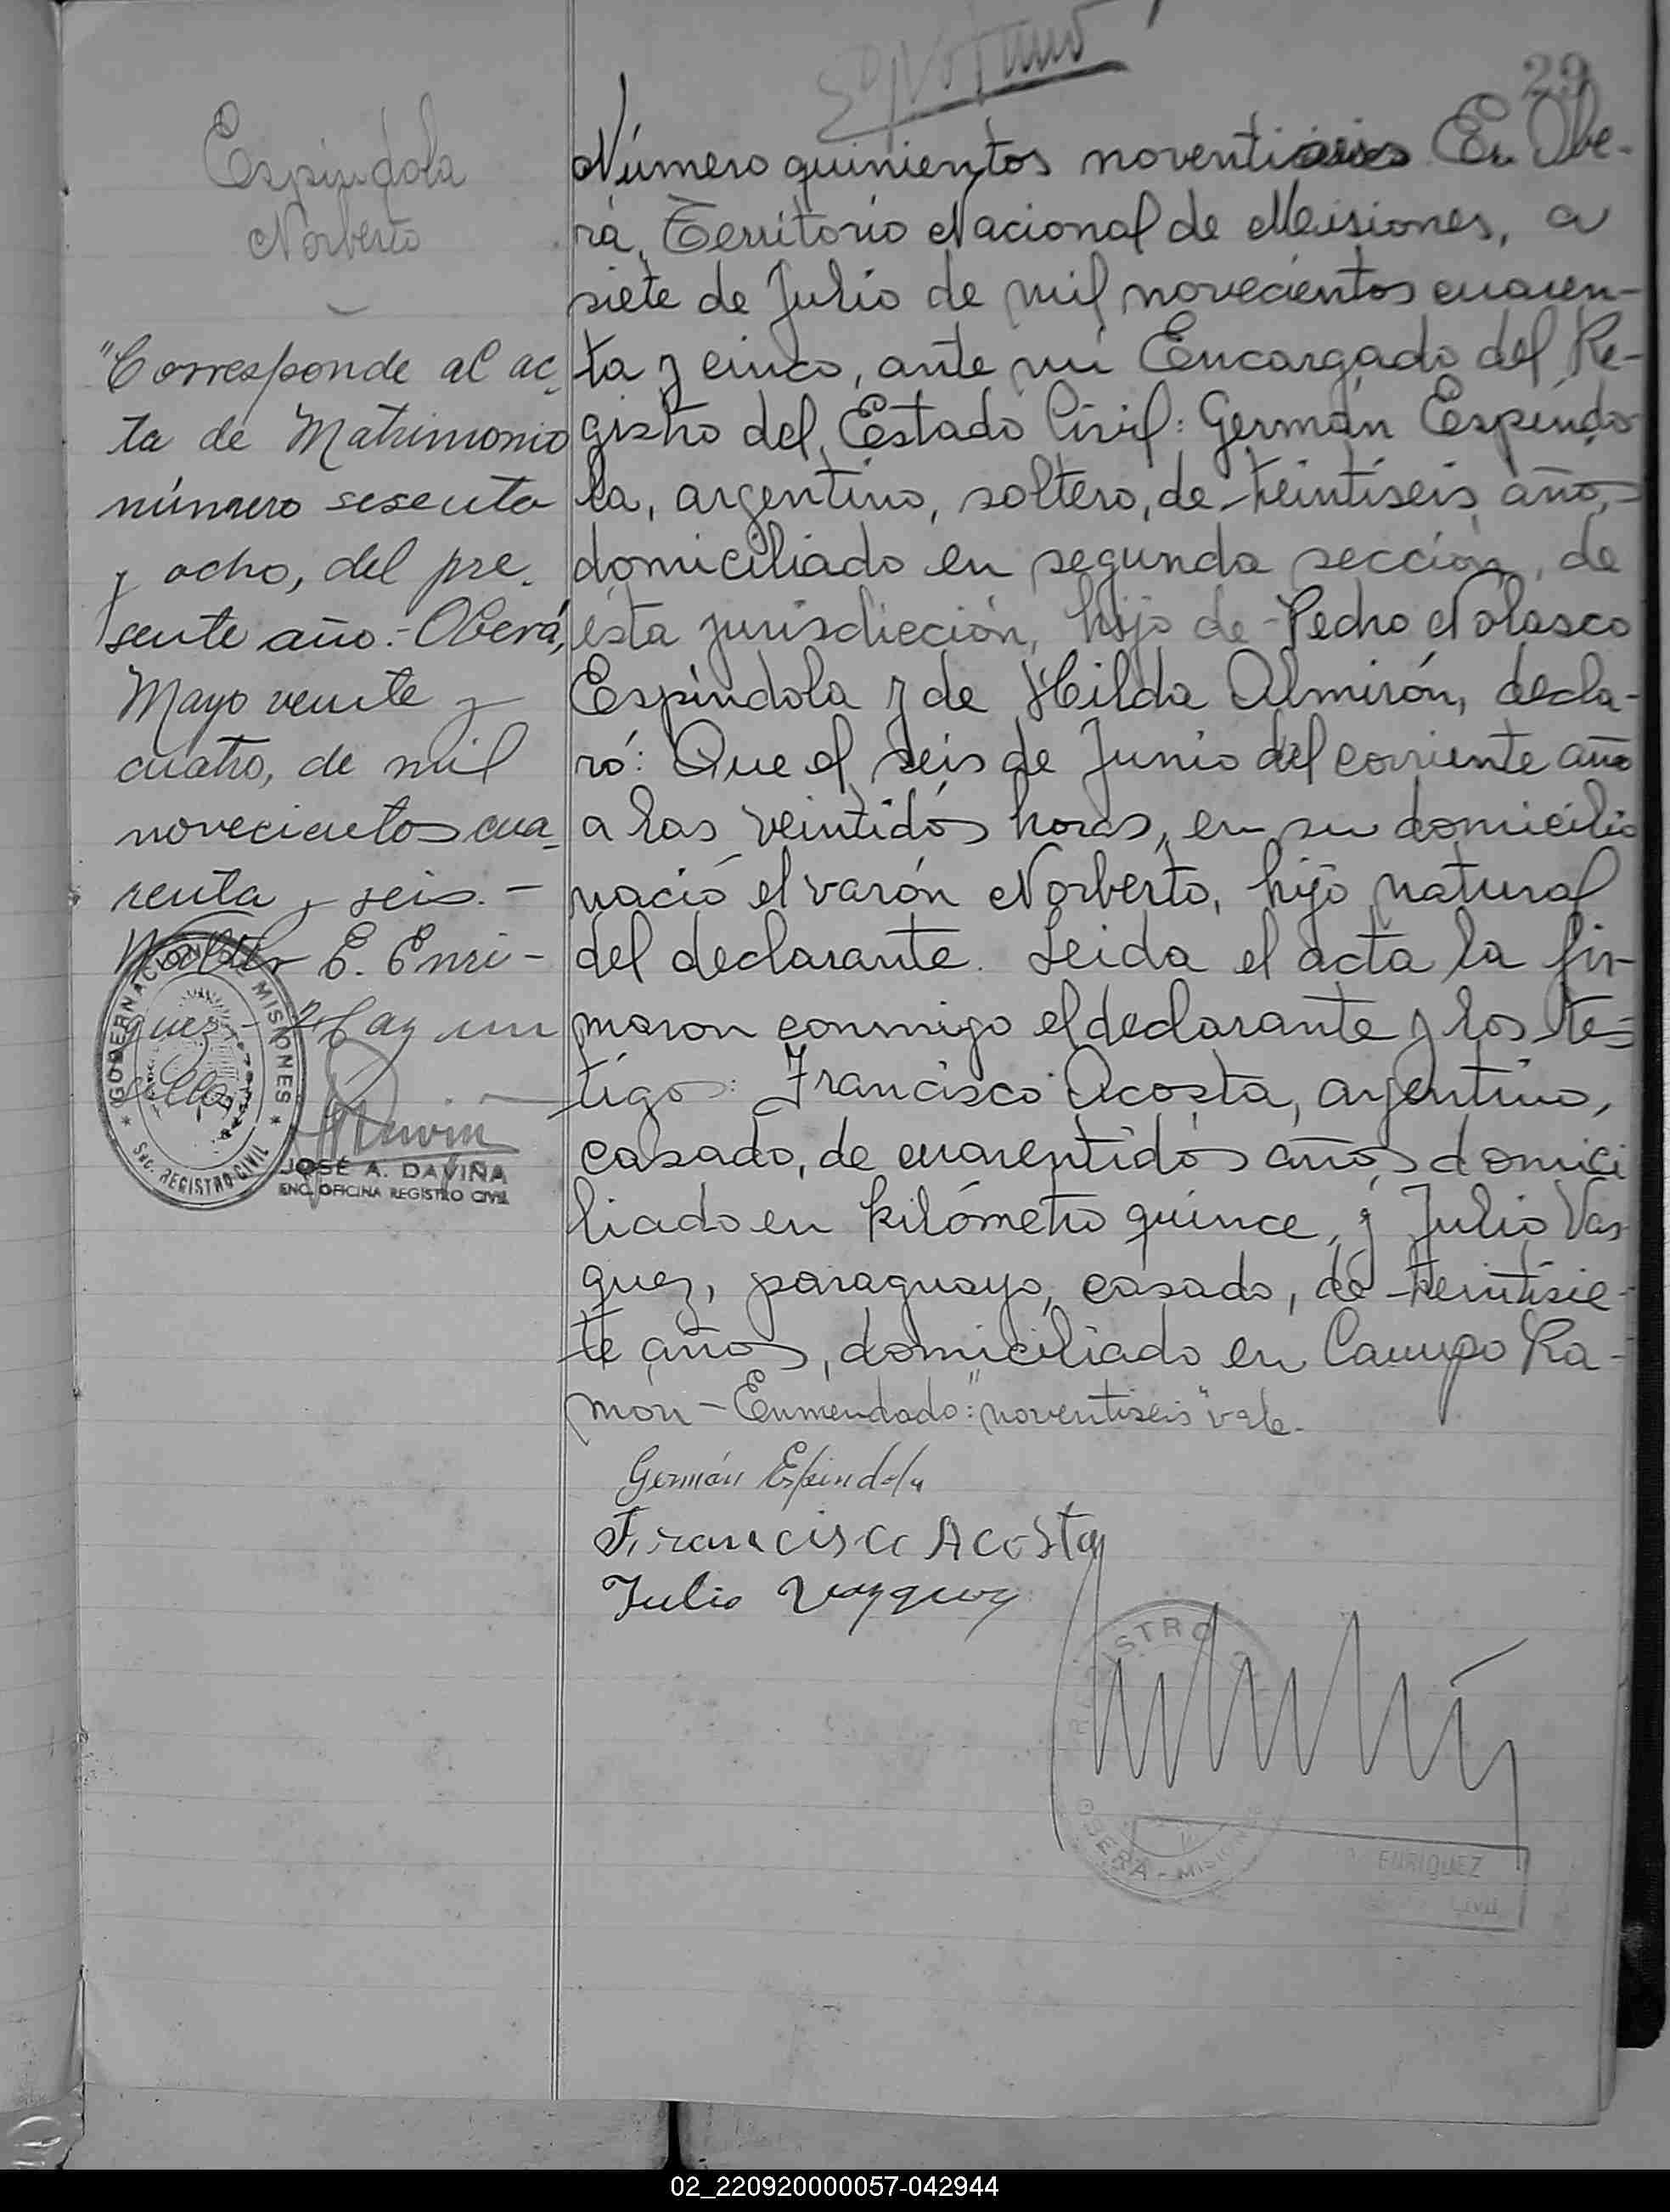 29
Espíndola
Norberto
"Corresponde al ac-
ta de Matrimonio
número sesenta
y ocho, del pre-
sente año.- Oberá,
Mayo veinte y
cuatro, de mil
novecientos cua-
renta y seis.-
Walter E. Enri-
quez - Hay un
sello
GOBERNACION MISIONES
SEC. REGISTRO CIVIL
JOSÉ A. DAVIÑA
ENC. OFICINA REGISTRO CIVIL
Número quinientos noventiseis En Obe-
rá, Territorio Nacional de Misiones, a
siete de Julio de mil novecientos cuaren-
ta y cinco, ante mi Encargado del Re-
gistro del Estado Civil: Germán Espíndo-
la, argentino, soltero, de treintiseis años,
domiciliado en segunda sección, de
ésta jurisdicción, hijo de Pedro Nolasco
Espíndola y de Hilda Almirón, decla-
ró: Que el seis de Junio del corriente año
a las veintidós horas, en su domicilio
nació el varón Norberto, hijo natural
del declarante. Leida el acta la fir-
maron conmigo el declarante y los tes-
tigos: Francisco Acosta, argentino,
casado, de cuarentidós años, domici
liado en kilómetro quince, y Julio Vas
quez, paraguayo, casado, de treintisie-
te años, domiciliado en Campo Ra-
món - Enmendado: "noventiseis" vale.
Germán Espindola
Francisco Acosta
Julio Vazquez
REGISTRO
OBERÁ - MISIONES
ENRIQUEZ
Civil
02_220920000057-042944